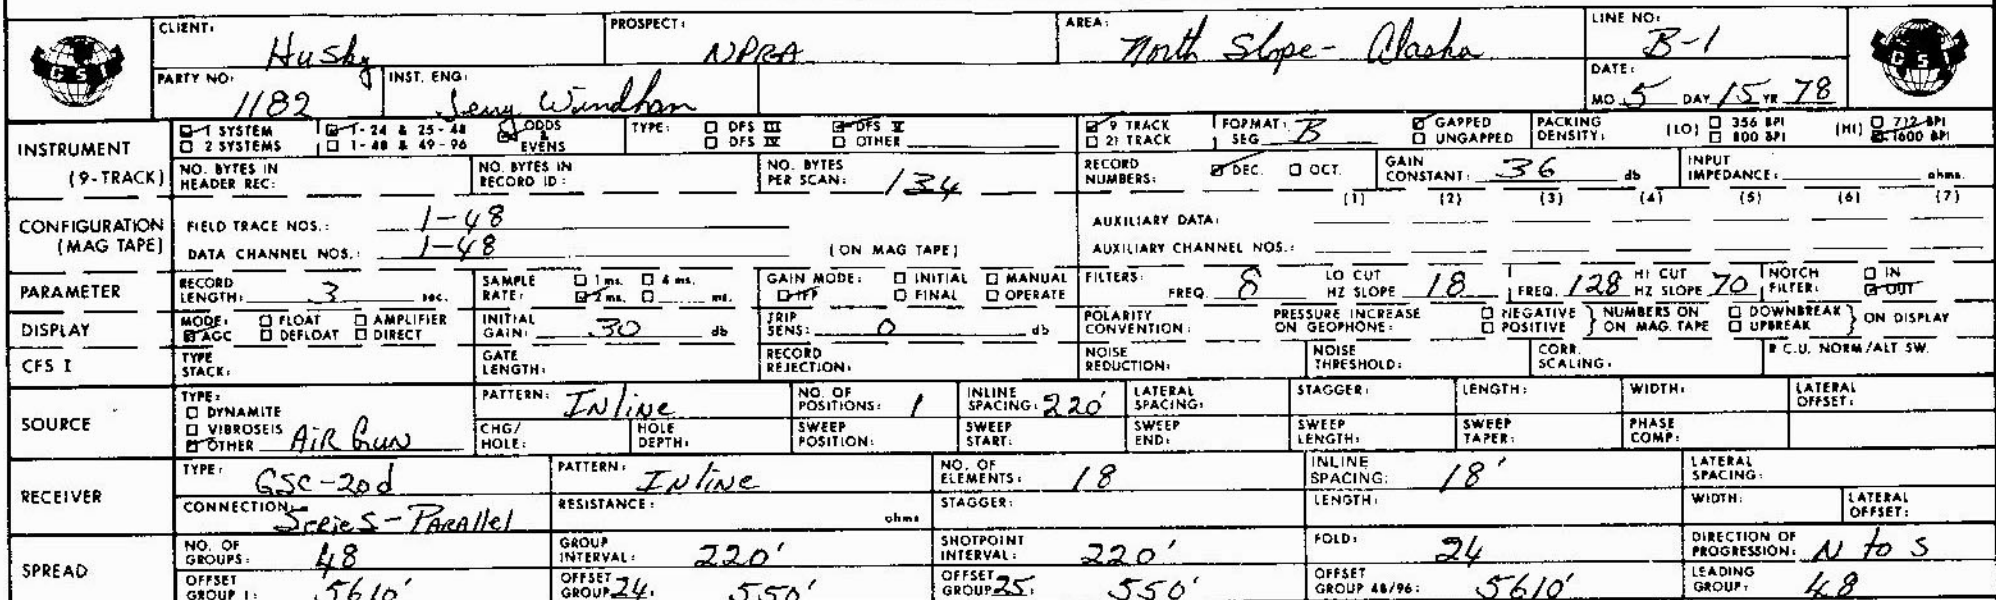 CLIENT: Husky PROSPECT: NPRA AREA: North Slope - Alaska LINE NO: B-1
GSI
PARTY NO: 1182 INST. ENG: Jerry Windham DATE: MO 5 DAY 15 YR 78
INSTRUMENT (9-TRACK) ☑ 1 SYSTEM ☑ 1-24 & 25-48 ☑ ODDS & EVENS TYPE: ☐ DFS III ☑ DFS V ☑ 9 TRACK FORMAT: SEG B ☑ GAPPED PACKING DENSITY: (LO) ☐ 356 BPI (HI) ☐ 712 BPI
☐ 2 SYSTEMS ☐ 1-48 & 49-96 ☐ DFS IV ☐ OTHER ☐ 21 TRACK ☐ UNGAPPED ☐ 800 BPI ☑ 1600 BPI
NO. BYTES IN HEADER REC: NO. BYTES IN RECORD ID: NO. BYTES PER SCAN: 134 RECORD NUMBERS: ☑ DEC. ☐ OCT. GAIN CONSTANT: 36 db INPUT IMPEDANCE: ohms.
(1) (2) (3) (4) (5) (6) (7)
CONFIGURATION (MAG TAPE) FIELD TRACE NOS.: 1-48 AUXILIARY DATA:
DATA CHANNEL NOS.: 1-48 (ON MAG TAPE) AUXILIARY CHANNEL NOS.:
PARAMETER RECORD LENGTH: 3 sec. SAMPLE RATE: ☐ 1 ms. ☐ 4 ms. ☑ 2 ms. ☐ ms. GAIN MODE: ☐ INITIAL ☐ MANUAL ☑ IFP ☐ FINAL ☐ OPERATE FILTERS: FREQ. 8 LO CUT HZ SLOPE 18 FREQ. 128 HI CUT HZ SLOPE 70 NOTCH FILTER: ☐ IN ☑ OUT
DISPLAY MODE: ☐ FLOAT ☐ AMPLIFIER ☑ AGC ☐ DEFLOAT ☐ DIRECT INITIAL GAIN: 30 db TRIP SENS: 0 db POLARITY CONVENTION: PRESSURE INCREASE ON GEOPHONE: ☐ NEGATIVE ☐ POSITIVE } NUMBERS ON MAG. TAPE ☐ DOWNBREAK ☐ UPBREAK } ON DISPLAY
CFS I TYPE STACK: GATE LENGTH: RECORD REJECTION: NOISE REDUCTION: NOISE THRESHOLD: CORR. SCALING: R.C.U. NORM/ALT SW.
SOURCE TYPE: ☐ DYNAMITE ☐ VIBROSEIS ☑ OTHER Air Gun PATTERN: Inline NO. OF POSITIONS: 1 INLINE SPACING: 220' LATERAL SPACING: STAGGER: LENGTH: WIDTH: LATERAL OFFSET:
CHG/HOLE: HOLE DEPTH: SWEEP POSITION: SWEEP START: SWEEP END: SWEEP LENGTH: SWEEP TAPER: PHASE COMP:
RECEIVER TYPE: GSC-20d PATTERN: Inline NO. OF ELEMENTS: 18 INLINE SPACING: 18' LATERAL SPACING:
CONNECTION: Series-Parallel RESISTANCE: ohms STAGGER: LENGTH: WIDTH: LATERAL OFFSET:
SPREAD NO. OF GROUPS: 48 GROUP INTERVAL: 220' SHOTPOINT INTERVAL: 220' FOLD: 24 DIRECTION OF PROGRESSION: N to S
OFFSET GROUP 1: 5610' OFFSET GROUP 24: 550' OFFSET GROUP 25: 550' OFFSET GROUP 48/96: 5610' LEADING GROUP: 48